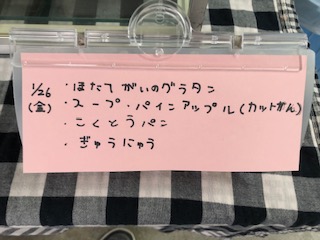 1/26 (金)
・ほたてがいのグラタン
・スープ・パインアップル(カットかん)
・こくとうパン
・ぎゅうにゅう